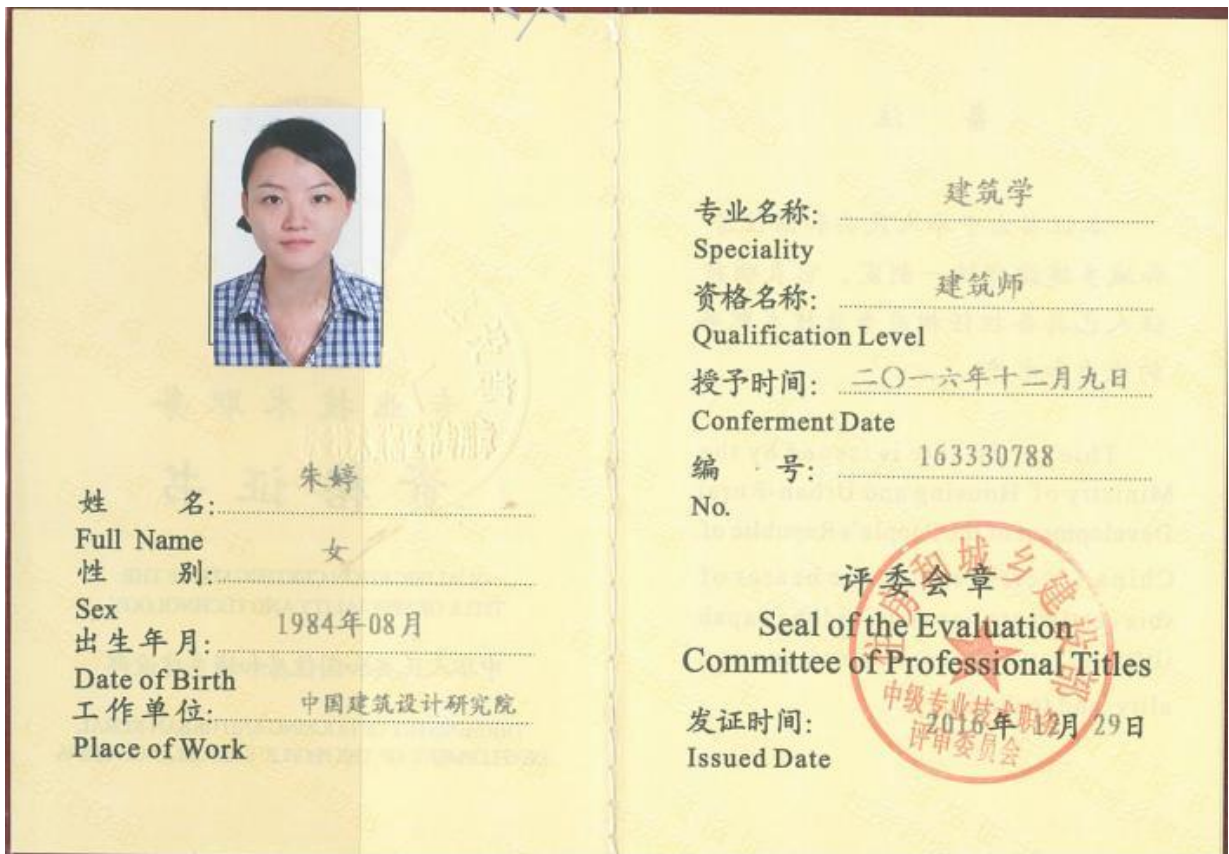 姓 名: 朱婷
Full Name
性 别: 女
Sex
出生年月: 1984年08月
Date of Birth
工作单位: 中国建筑设计研究院
Place of Work
专业名称: 建筑学
Speciality
资格名称: 建筑师
Qualification Level
授予时间: 二〇一六年十二月九日
Conferment Date
编 号: 163330788
No.
评委会章
Seal of the Evaluation
Committee of Professional Titles
发证时间: 2016年 12月 29日
Issued Date
住房和城乡建设部
中级专业技术职务
评审委员会